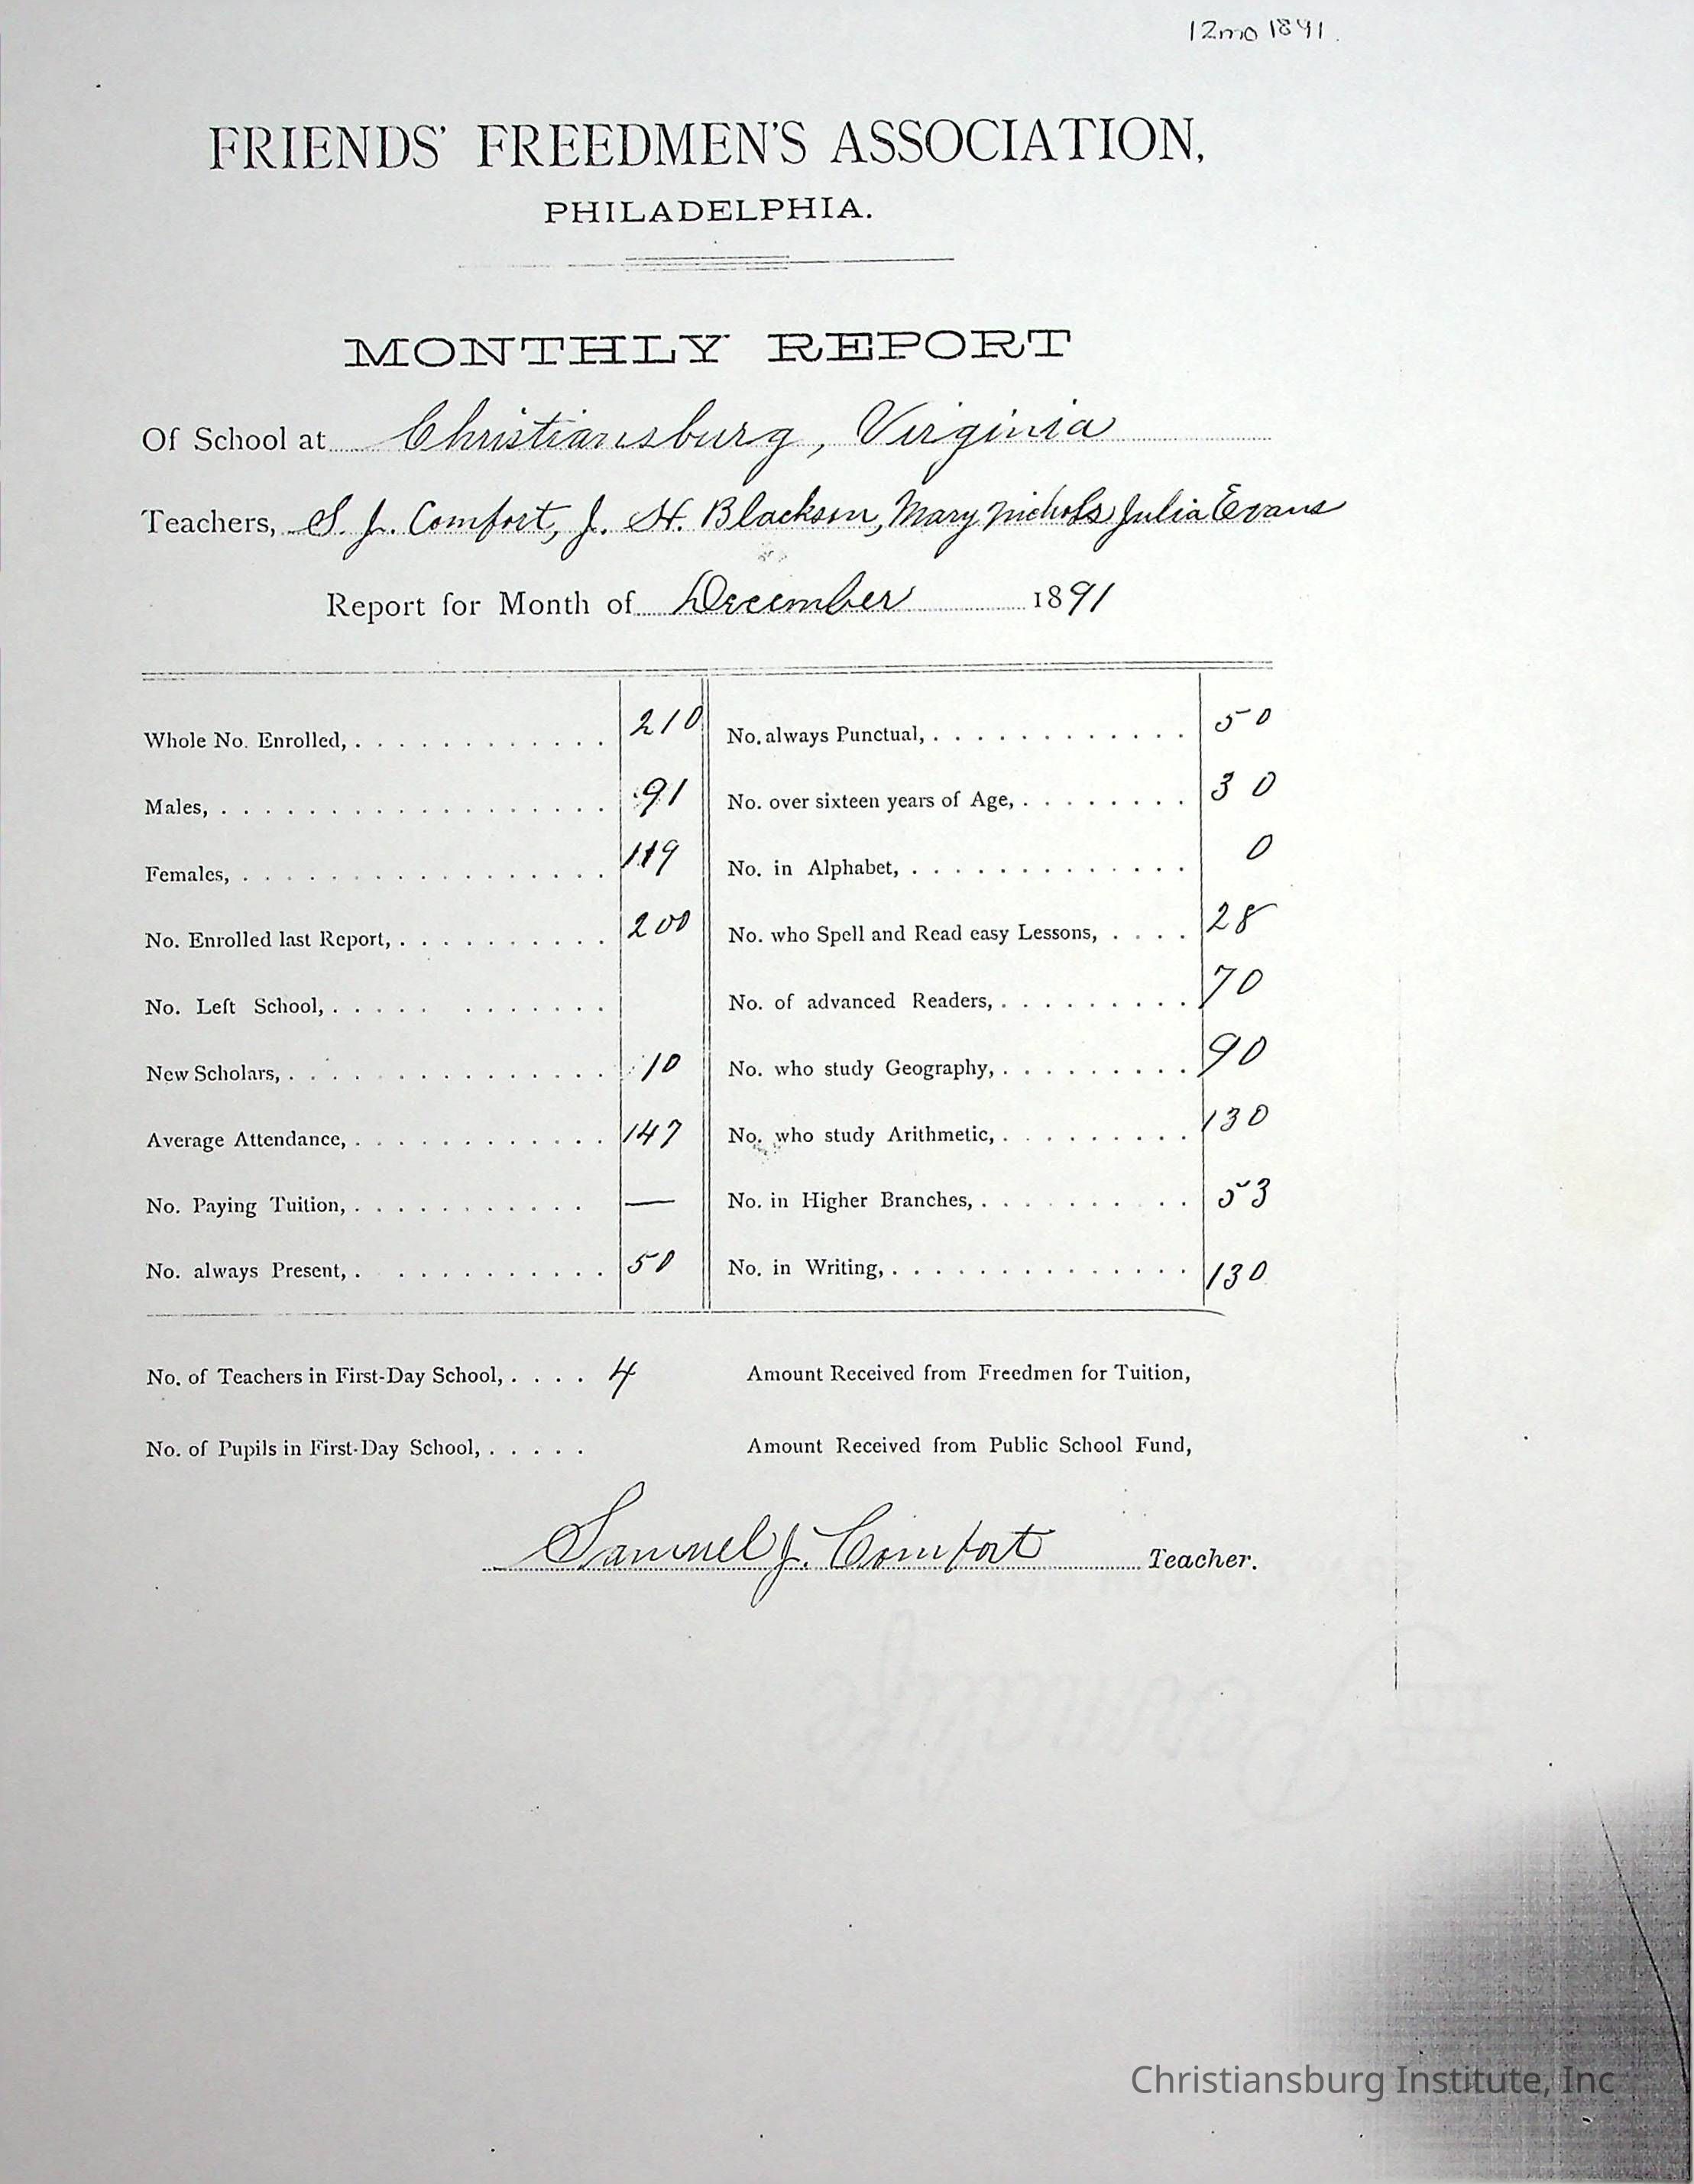 12mo 1891.
FRIENDS' FREEDMEN'S ASSOCIATION,
PHILADELPHIA.
MONTHLY REPORT
Of School at Christiansburg, Virginia
Teachers, S. J. Comfort, J. H. Blackson, Mary Nichols Julia Evans
Report for Month of December 1891
Whole No. Enrolled, 210 No. always Punctual, 50
Males, 91 No. over sixteen years of Age, 30
Females, 119 No. in Alphabet, 0
No. Enrolled last Report, 200 No. who Spell and Read easy Lessons, 28
No. Left School, No. of advanced Readers, 70
New Scholars, 10 No. who study Geography, 90
Average Attendance, 147 No. who study Arithmetic, 130
No. Paying Tuition, — No. in Higher Branches, 53
No. always Present, 50 No. in Writing, 130
No. of Teachers in First-Day School, 4 Amount Received from Freedmen for Tuition,
No. of Pupils in First-Day School, Amount Received from Public School Fund,
Samuel J. Comfort Teacher.
Christiansburg Institute, Inc